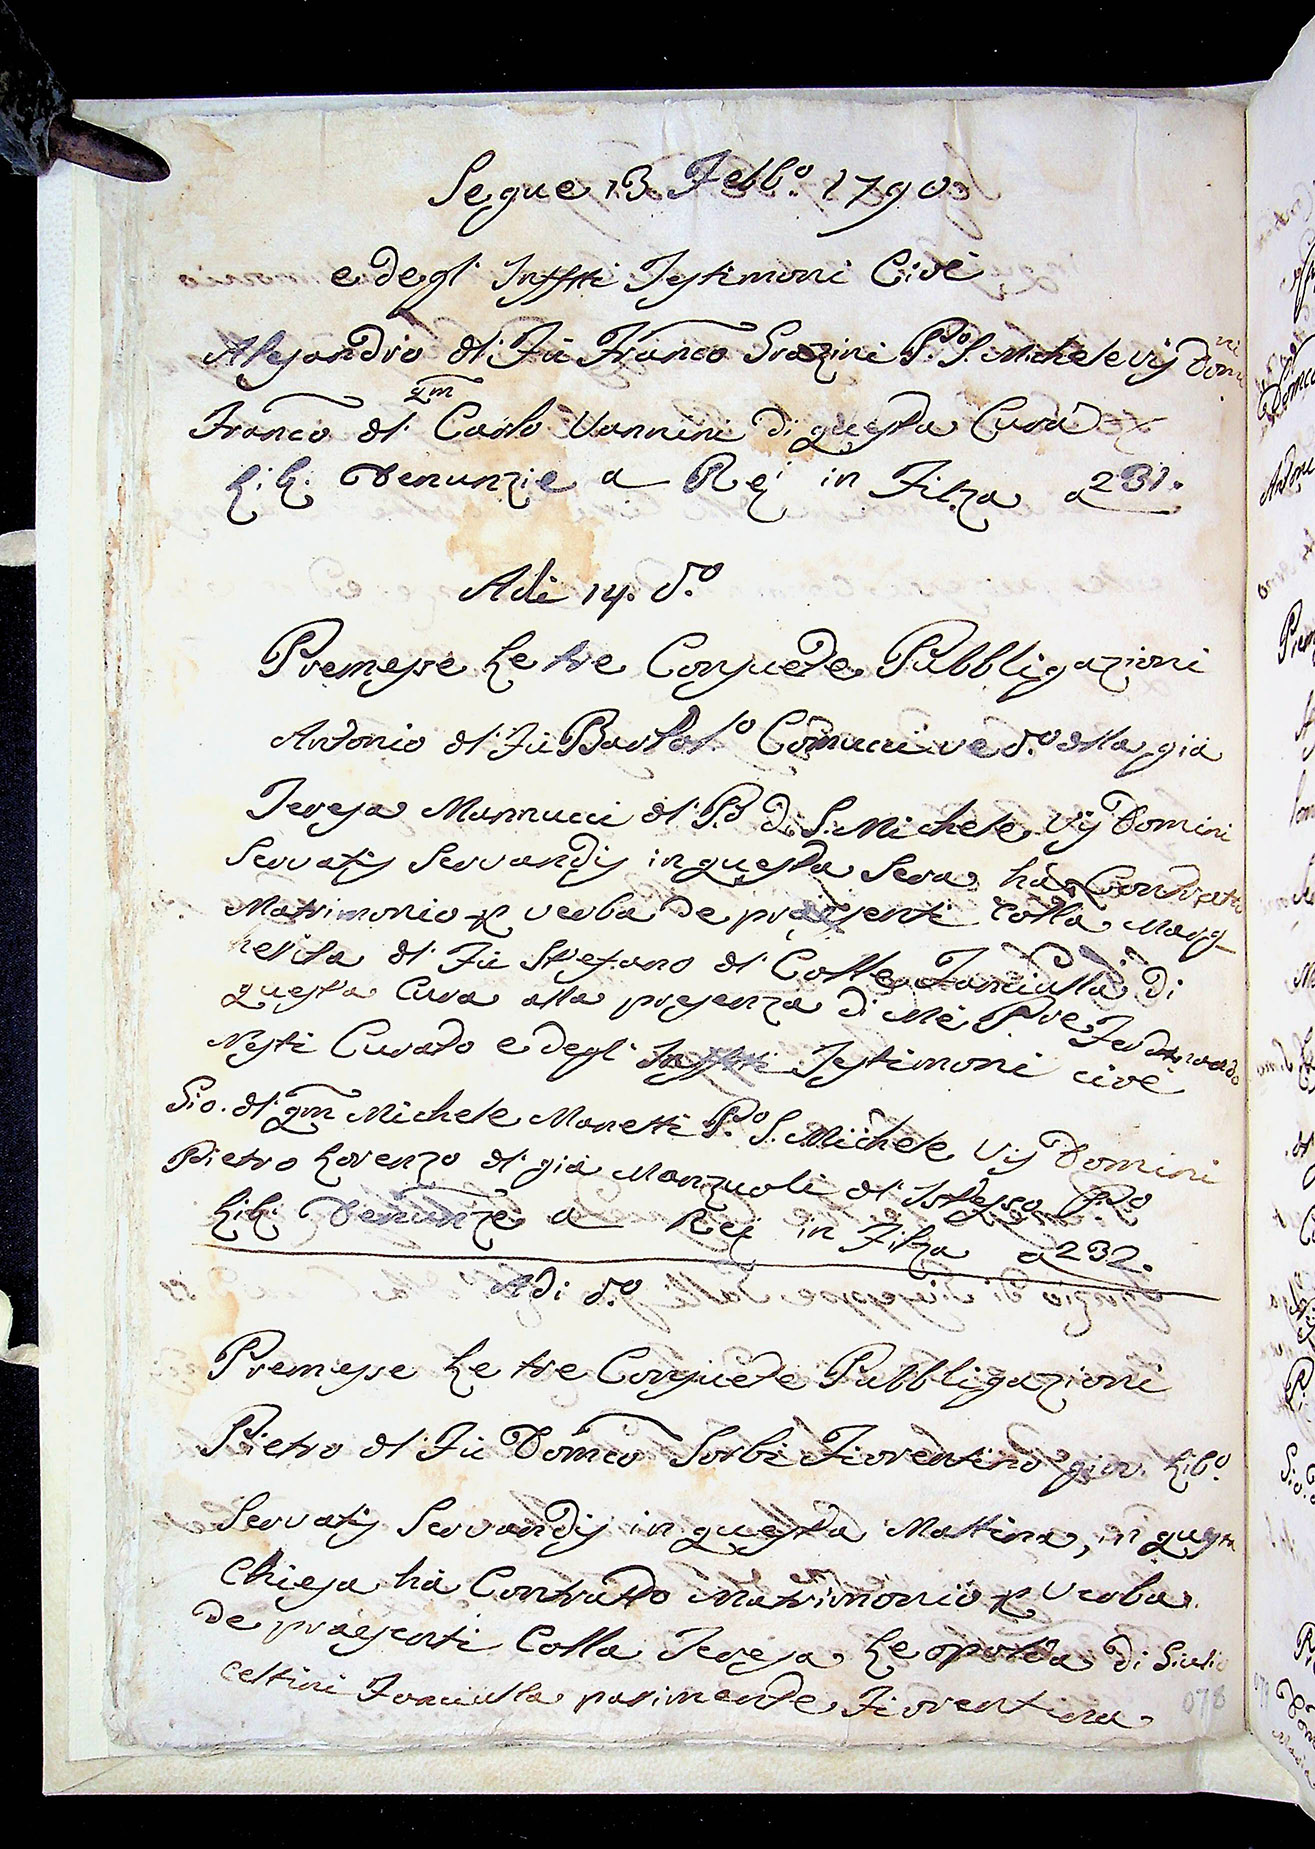 Segue 13 Febb.º 1790.
e degl' Inffti Testimoni Civè
Alesandro dl' Fù Franco Grazini P.º S. Michele Vis Domini
Franco dl' qm Carlo Vannini di questa Cura
Lib. Denunzie a Rej in Filza a 231.
Adi 14. d.º
Premesse Le tre Consuete Pubbligazioni
Antonio dl' Fù Bartol.º Comucci ved.º dlla già
Teresa Mannucci dl' P.º di S. Michele Vis Domini
Servatis Servandis in questa Sera hà Contratto
Matrimonio p verba de praesenti Colla Marg
herita dl' Fù Stefano dl' Colle Fanciulla di
questa Cura alla presenza di Mè Pre Ferdinando
Nesti Curato e degl' Inffti Testimoni civè
Gio. dl' qm Michele Manetti P.º S. Michele Vis Domini
Pietro Lorenzo dl' già Manzuoli dl' Istesso P.º
Lib. Denunzie a Rej in Filza a 232.
Adi d.º
Premesse Le tre Consuete Pubbligazioni
Pietro dl' Fù Domco Sorbi Fiorentino giov. Lib.º
Servatis Servandis in questa Mattina, in questa
Chiesa hà Contratto Matrimonio p Verba
de praesenti Colla Teresa Leopolda di Giulio
Cellini Fanciulla parimente Fiorentina
078